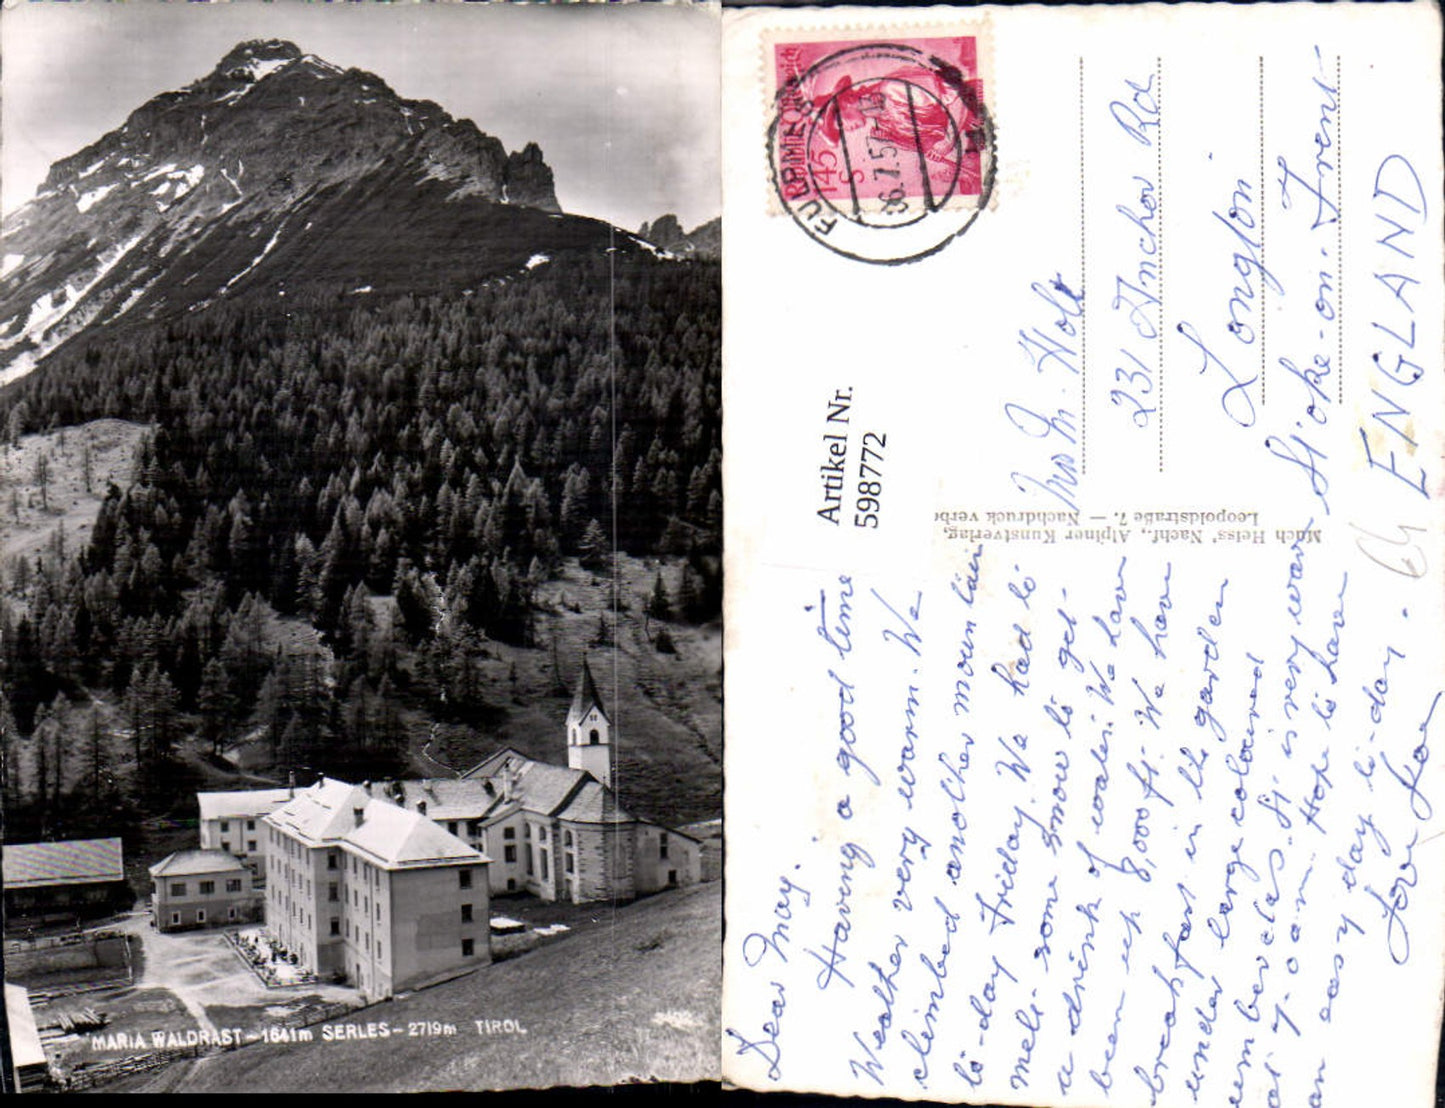 MARIA WALDRAST - 1641m SERLES - 2719m TIROL
Republik Österreich
1.45
S
FULPMES
7.57-13
Artikel Nr.
598772
Much Heiss' Nachf., Alpiner Kunstverlag,
Leopoldstraße 7. — Nachdruck verbo
M. Holt
231 Anchor Rd
Longton
Stoke-on-Trent
ENGLAND
Dear May.
Having a good time
Weather very warm. We
climbed another mountain
to-day Friday. We had to
melt some snow to get
a drink of water. We have
been up 8,000 ft. We have
breakfast in the garden
under large coloured
umberelas. It is very warm
at 7-0 am. Hope to have
an easy day to-day.
Love